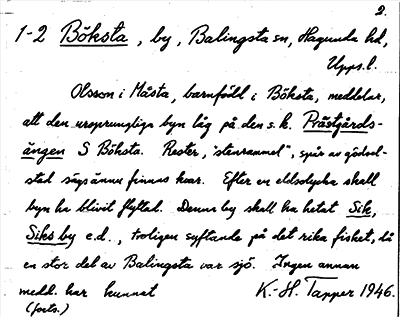 2.
1-2 Böksta, by, Balingsta sn, Hagunda hd,
Upps. l.
Olsson i Måsta, barnfödd i Böksta, meddelar,
att den ursprungliga byn låg på den s.k. Prästgårds-
ängen S Böksta. Rester, "stenrammel", spår av gödsel-
stad sägs ännu finnas kvar. Efter en eldsolycka skall
byn ha blivit flyttad. Denna by skall ha hetat Sik,
Siks by e.d., troligen syftande på det rika fisket, då
en stor del av Balingsta var sjö. Ingen annan
medd. har kunnat K.-H. Tapper 1946.
(forts.)